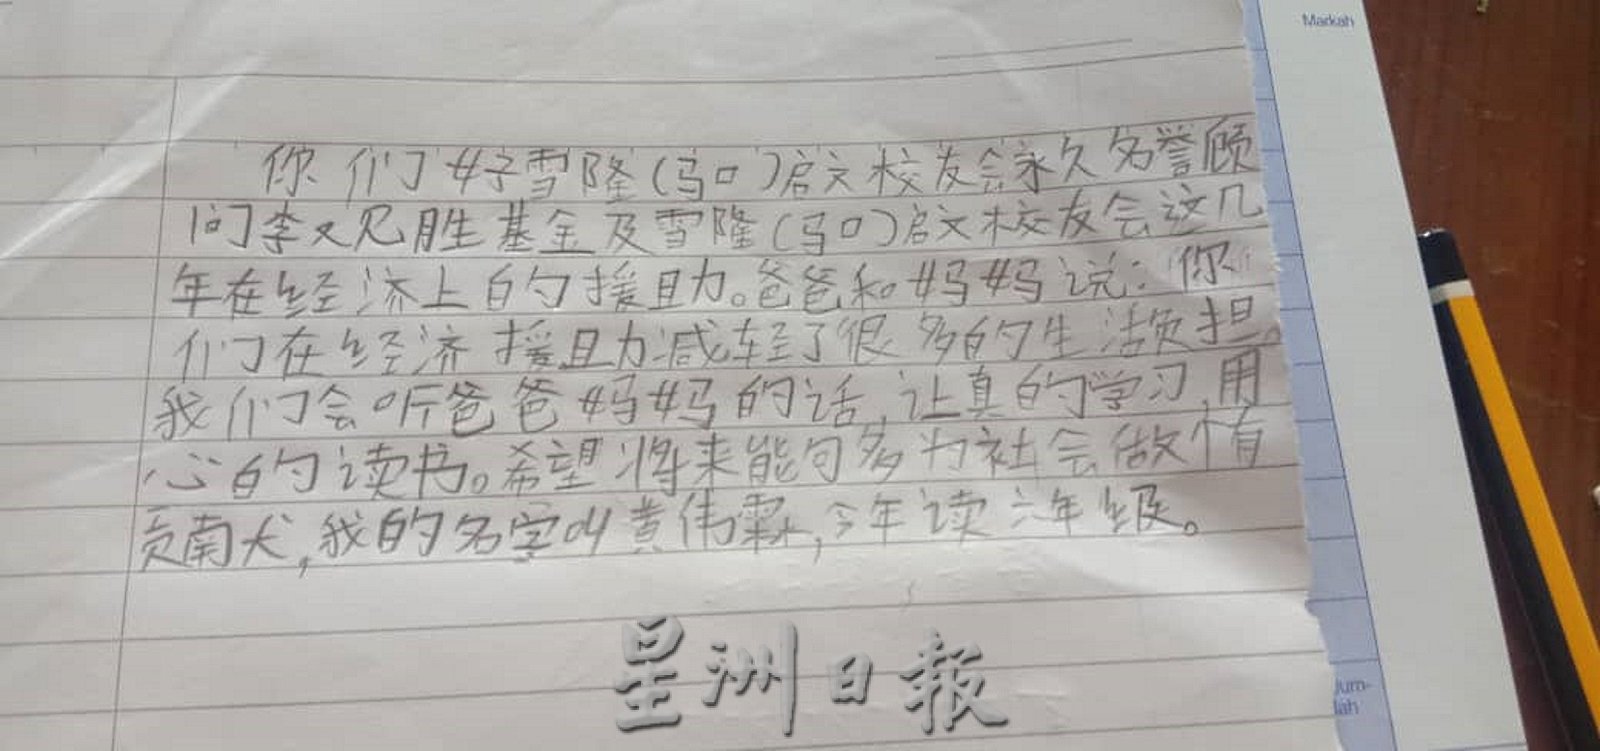 Markah
你们好雪隆(马口)启文校友会永久名誉顾
问李观胜基金及雪隆(马口)启文校友会这几
年在经济上的援助。爸爸和妈妈说:你
们在经济援助减轻了很多的生活负担。
我们会听爸爸妈妈的话,让真的学习,用
心的读书。希望将来能句多为社会做有
贡南犬,我的名字叫黄伟霖,今年读六年级。
星洲日報
Jum-
lah